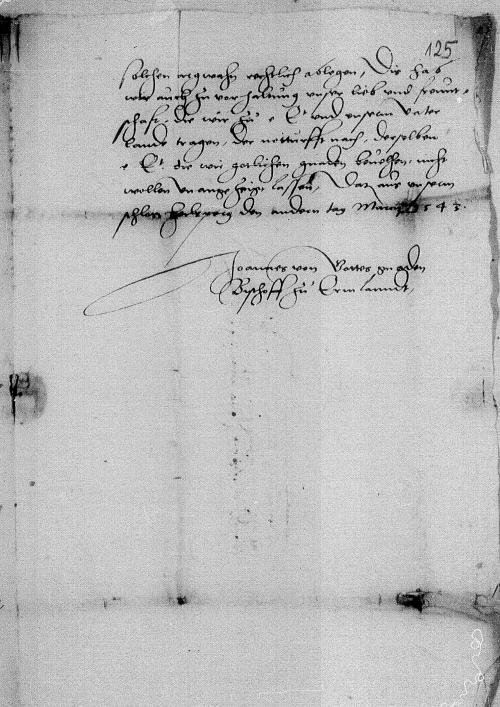 125
solchen argwahn rechtlich ablegen, Die hab
wir auch zu vorhaltung unser lieb und freunt-
schaft, die wir zu e E und unserm Vater
lande tragen, der notturfft nach, derselben
e E die wir gotlichen gnaden bevolhen, nicht
wollen unangezeigt lassen, Dat aus unserm
schlos den andern tag Marcii 1543.
Joannes von Gottes gnaden
Bischoff zu Ermlanndt